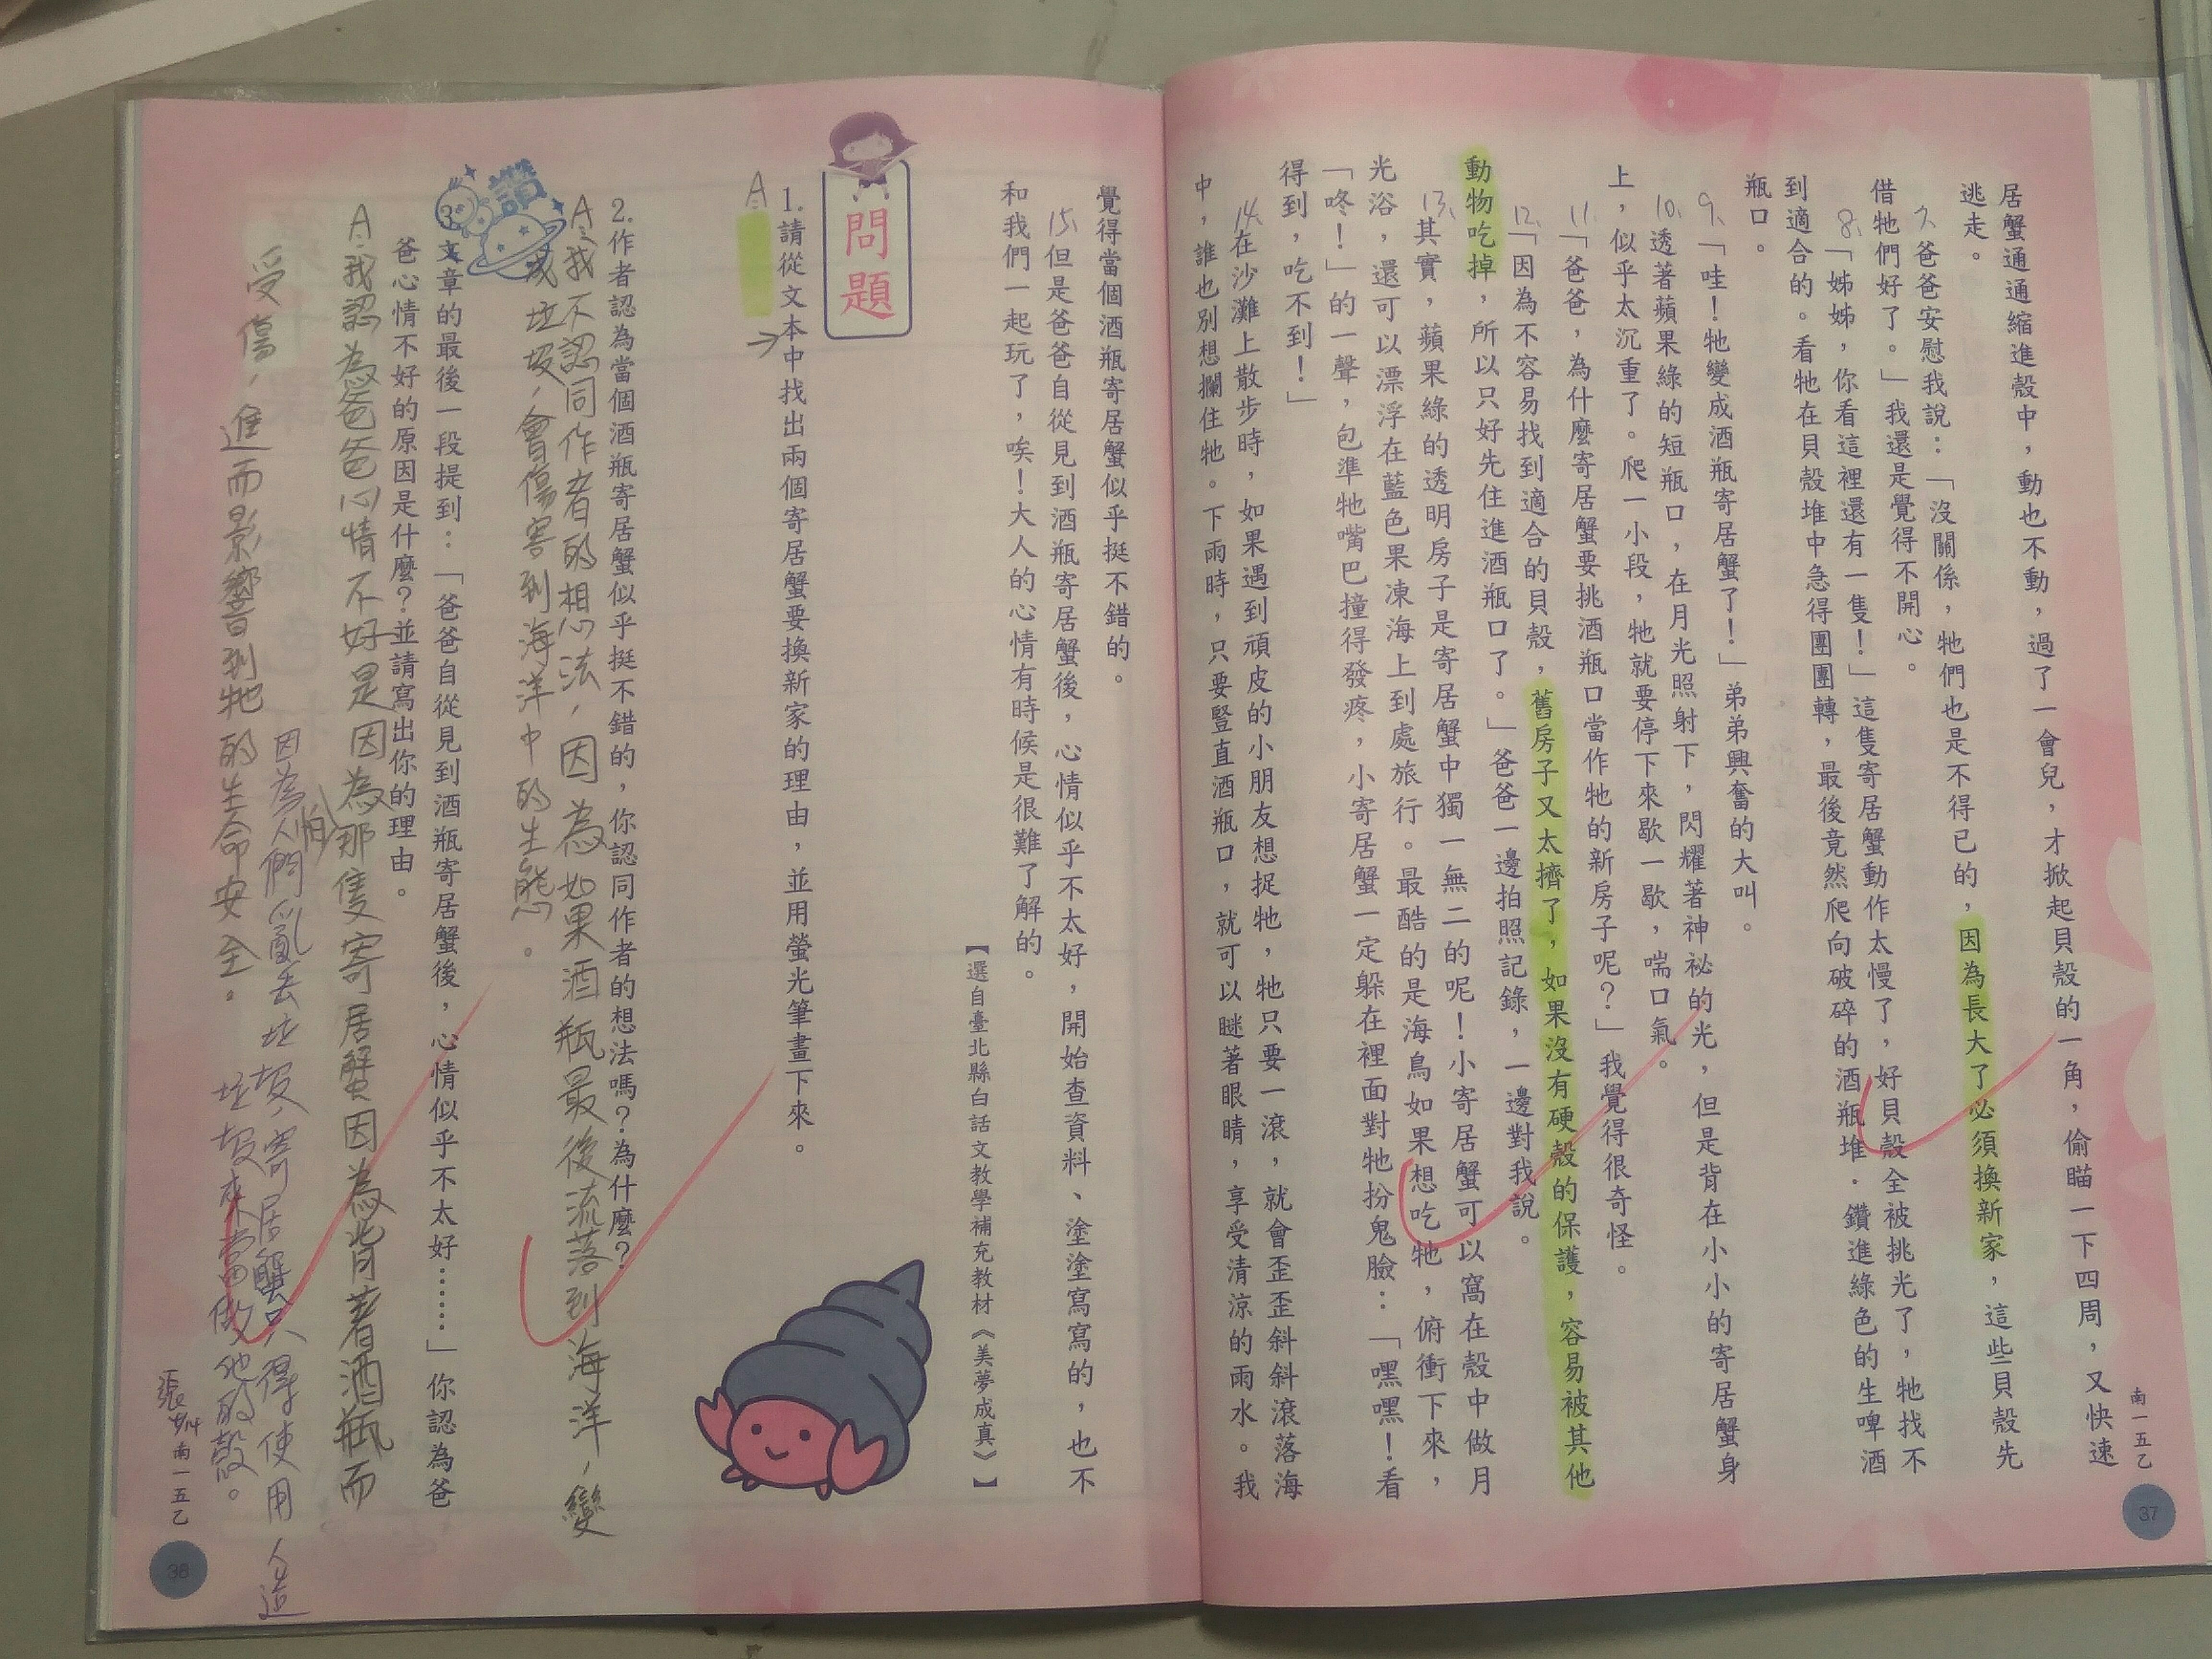 居蟹通通縮進殼中，動也不動，過了一會兒，才掀起貝殼的一角，偷瞄一下四周，又快速
逃走。
7、爸爸安慰我說：「沒關係，牠們也是不得已的，因為長大了必須換新家，這些貝殼先
借牠們好了。」我還是覺得不開心。
8、「姊姊，你看這裡還有一隻！」這隻寄居蟹動作太慢了，好貝殼全被挑光了，牠找不
到適合的。看牠在貝殼堆中急得團團轉，最後竟然爬向破碎的酒瓶堆．鑽進綠色的生啤酒
瓶口。
9、「哇！牠變成酒瓶寄居蟹了！」弟弟興奮的大叫。
10、透著蘋果綠的短瓶口，在月光照射下，閃耀著神祕的光，但是背在小小的寄居蟹身
上，似乎太沉重了。爬一小段，牠就要停下來歇一歇，喘口氣。
11、「爸爸，為什麼寄居蟹要挑酒瓶口當作牠的新房子呢？」我覺得很奇怪。
12、「因為不容易找到適合的貝殼，舊房子又太擠了，如果沒有硬殼的保護，容易被其他
動物吃掉，所以只好先住進酒瓶口了。」爸爸一邊拍照記錄，一邊對我說。
13、其實，蘋果綠的透明房子是寄居蟹中獨一無二的呢！小寄居蟹可以窩在殼中做月
光浴，還可以漂浮在藍色果凍海上到處旅行。最酷的是海鳥如果想吃牠，俯衝下來，
「咚！」的一聲，包準牠嘴巴撞得發疼，小寄居蟹一定躲在裡面對牠扮鬼臉：「嘿嘿！看
得到，吃不到！」
14、在沙灘上散步時，如果遇到頑皮的小朋友想捉牠，牠只要一滾，就會歪歪斜斜滾落海
中，誰也別想攔住牠。下雨時，只要豎直酒瓶口，就可以瞇著眼睛，享受清涼的雨水。我
南一五乙
37
覺得當個酒瓶寄居蟹似乎挺不錯的。
15、但是爸爸自從見到酒瓶寄居蟹後，心情似乎不太好，開始查資料、塗塗寫寫的，也不
和我們一起玩了，唉！大人的心情有時候是很難了解的。
【選自臺北縣白話文教學補充教材《美夢成真》】
問題
1.請從文本中找出兩個寄居蟹要換新家的理由，並用螢光筆畫下來。
A:
2.作者認為當個酒瓶寄居蟹似乎挺不錯的，你認同作者的想法嗎？為什麼？
A:我不認同作者的想法，因為如果酒瓶最後流落到海洋，變
成垃圾，會傷害到海洋中的生態。
讚
3.文章的最後一段提到：「爸爸自從見到酒瓶寄居蟹後，心情似乎不太好……」你認為爸
爸心情不好的原因是什麼？並請寫出你的理由。
A:我認為爸爸心情不好是因為那隻寄居蟹因為背著酒瓶而
怕
受傷，進而影響到牠的生命安全。
因為人們亂丟垃圾，寄居蟹只得使用人造
垃圾來當做他的殼。
張 4/14
南一五乙
38